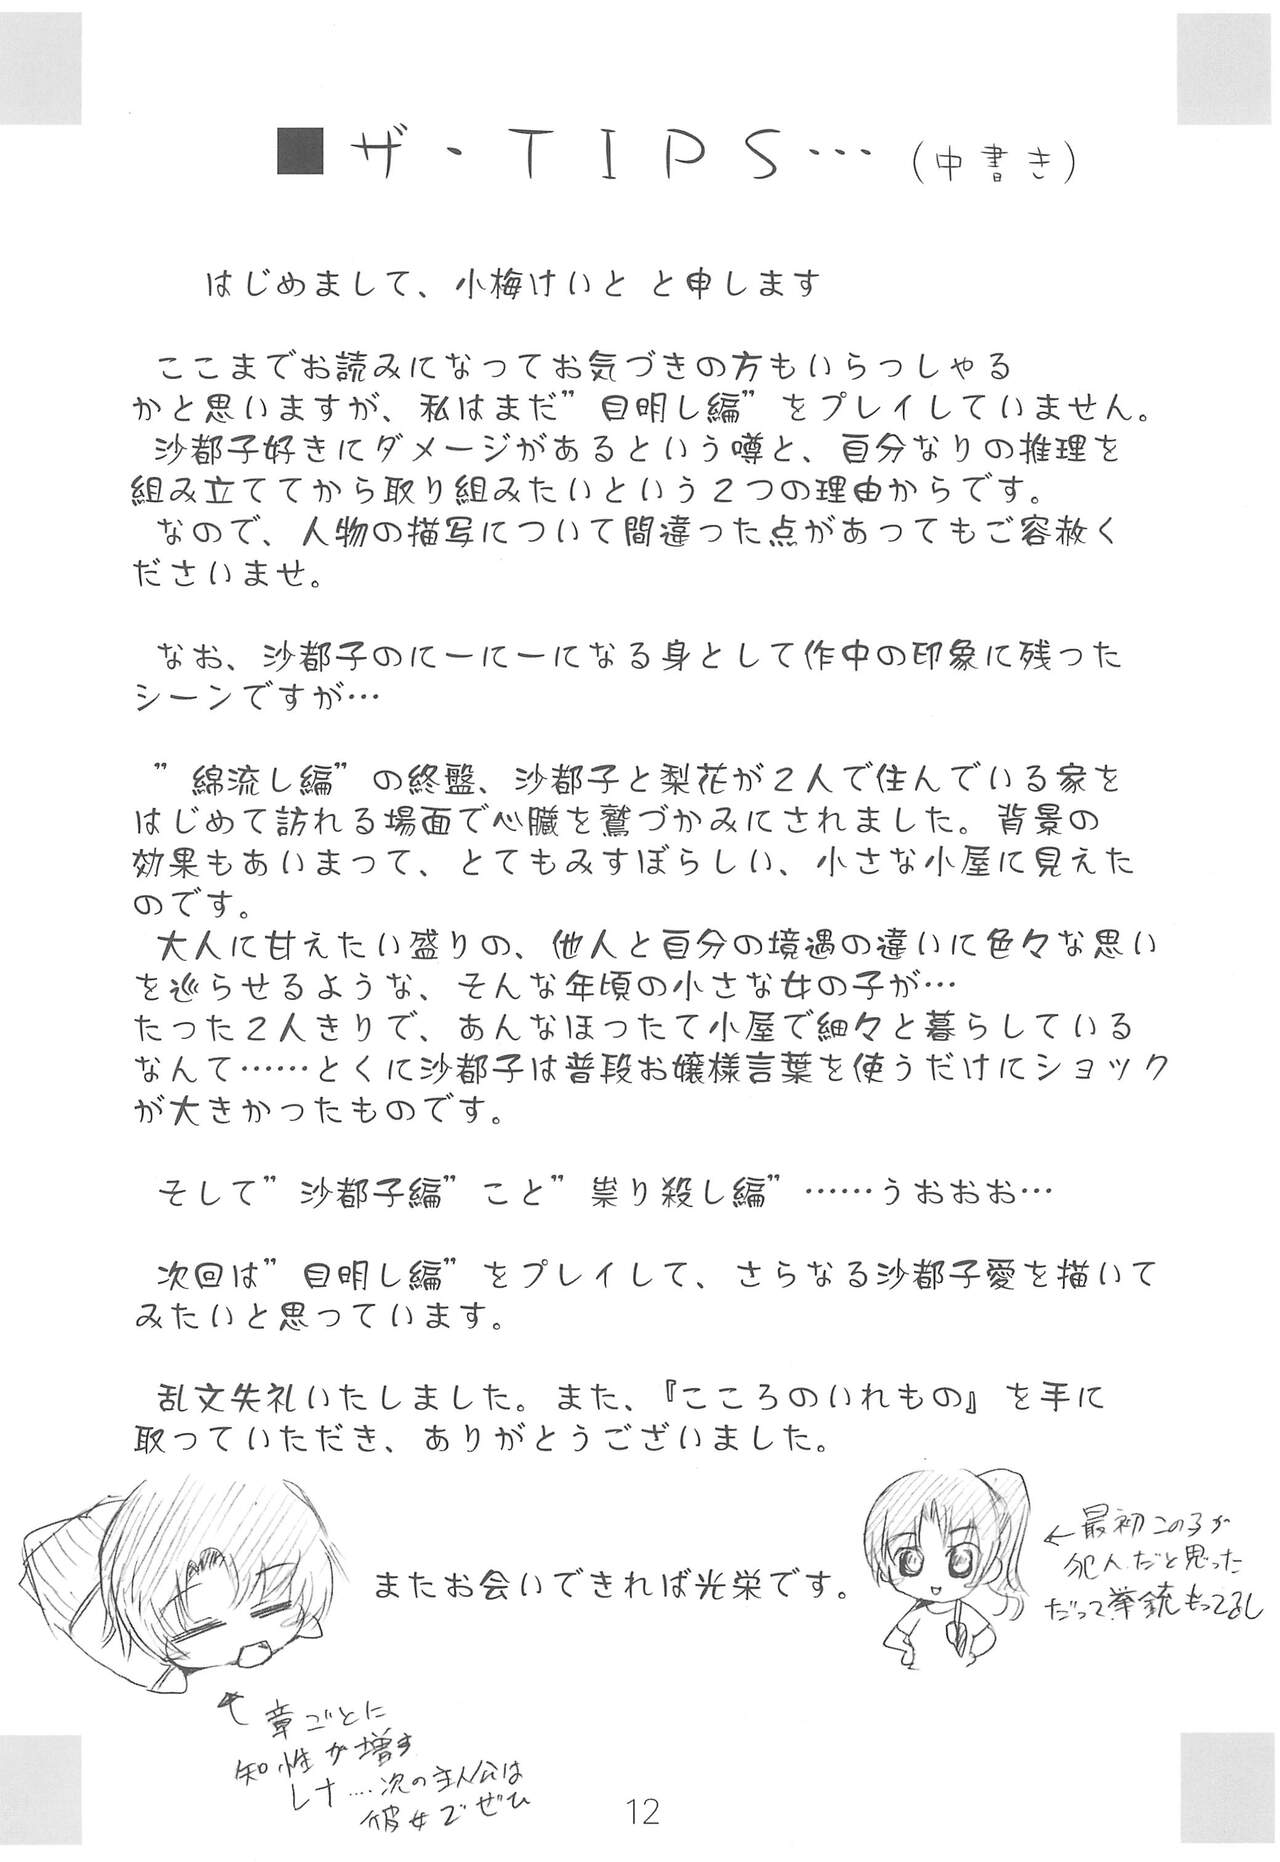 ■ザ・TIPS…（中書き）
はじめまして、小梅けいと と申します
ここまでお読みになってお気づきの方もいらっしゃる
かと思いますが、私はまだ”目明し編”をプレイしていません。
沙都子好きにダメージがあるという噂と、自分なりの推理を
組み立ててから取り組みたいという2つの理由からです。
なので、人物の描写について間違った点があってもご容赦く
ださいませ。
なお、沙都子のにーにーになる身として作中の印象に残った
シーンですが…
”綿流し編”の終盤、沙都子と梨花が2人で住んでいる家を
はじめて訪れる場面で心臓を鷲づかみにされました。背景の
効果もあいまって、とてもみすぼらしい、小さな小屋に見えた
のです。
大人に甘えたい盛りの、他人と自分の境遇の違いに色々な思い
を巡らせるような、そんな年頃の小さな女の子が…
たった2人きりで、あんなほったて小屋で細々と暮らしている
なんて……とくに沙都子は普段お嬢様言葉を使うだけにショック
が大きかったものです。
そして”沙都子編”こと”祟り殺し編”……うおおお…
次回は”目明し編”をプレイして、さらなる沙都子愛を描いて
みたいと思っています。
乱文失礼いたしました。また、『こころのいれもの』を手に
取っていただき、ありがとうございました。
またお会いできれば光栄です。
←最初この子が
犯人だと思った
だって拳銃もってるし
章ごとに
知性が増す
レナ….次の主人公は
彼女でぜひ
12